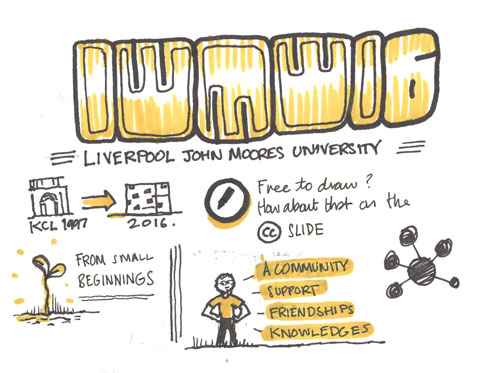 IWMW16
LIVERPOOL JOHN MOORES UNIVERSITY
KCL 1997
2016.
Free to draw?
How about that on the
CC SLIDE
FROM SMALL
BEGINNINGS
A COMMUNITY
SUPPORT
FRIENDSHIPS
KNOWLEDGES